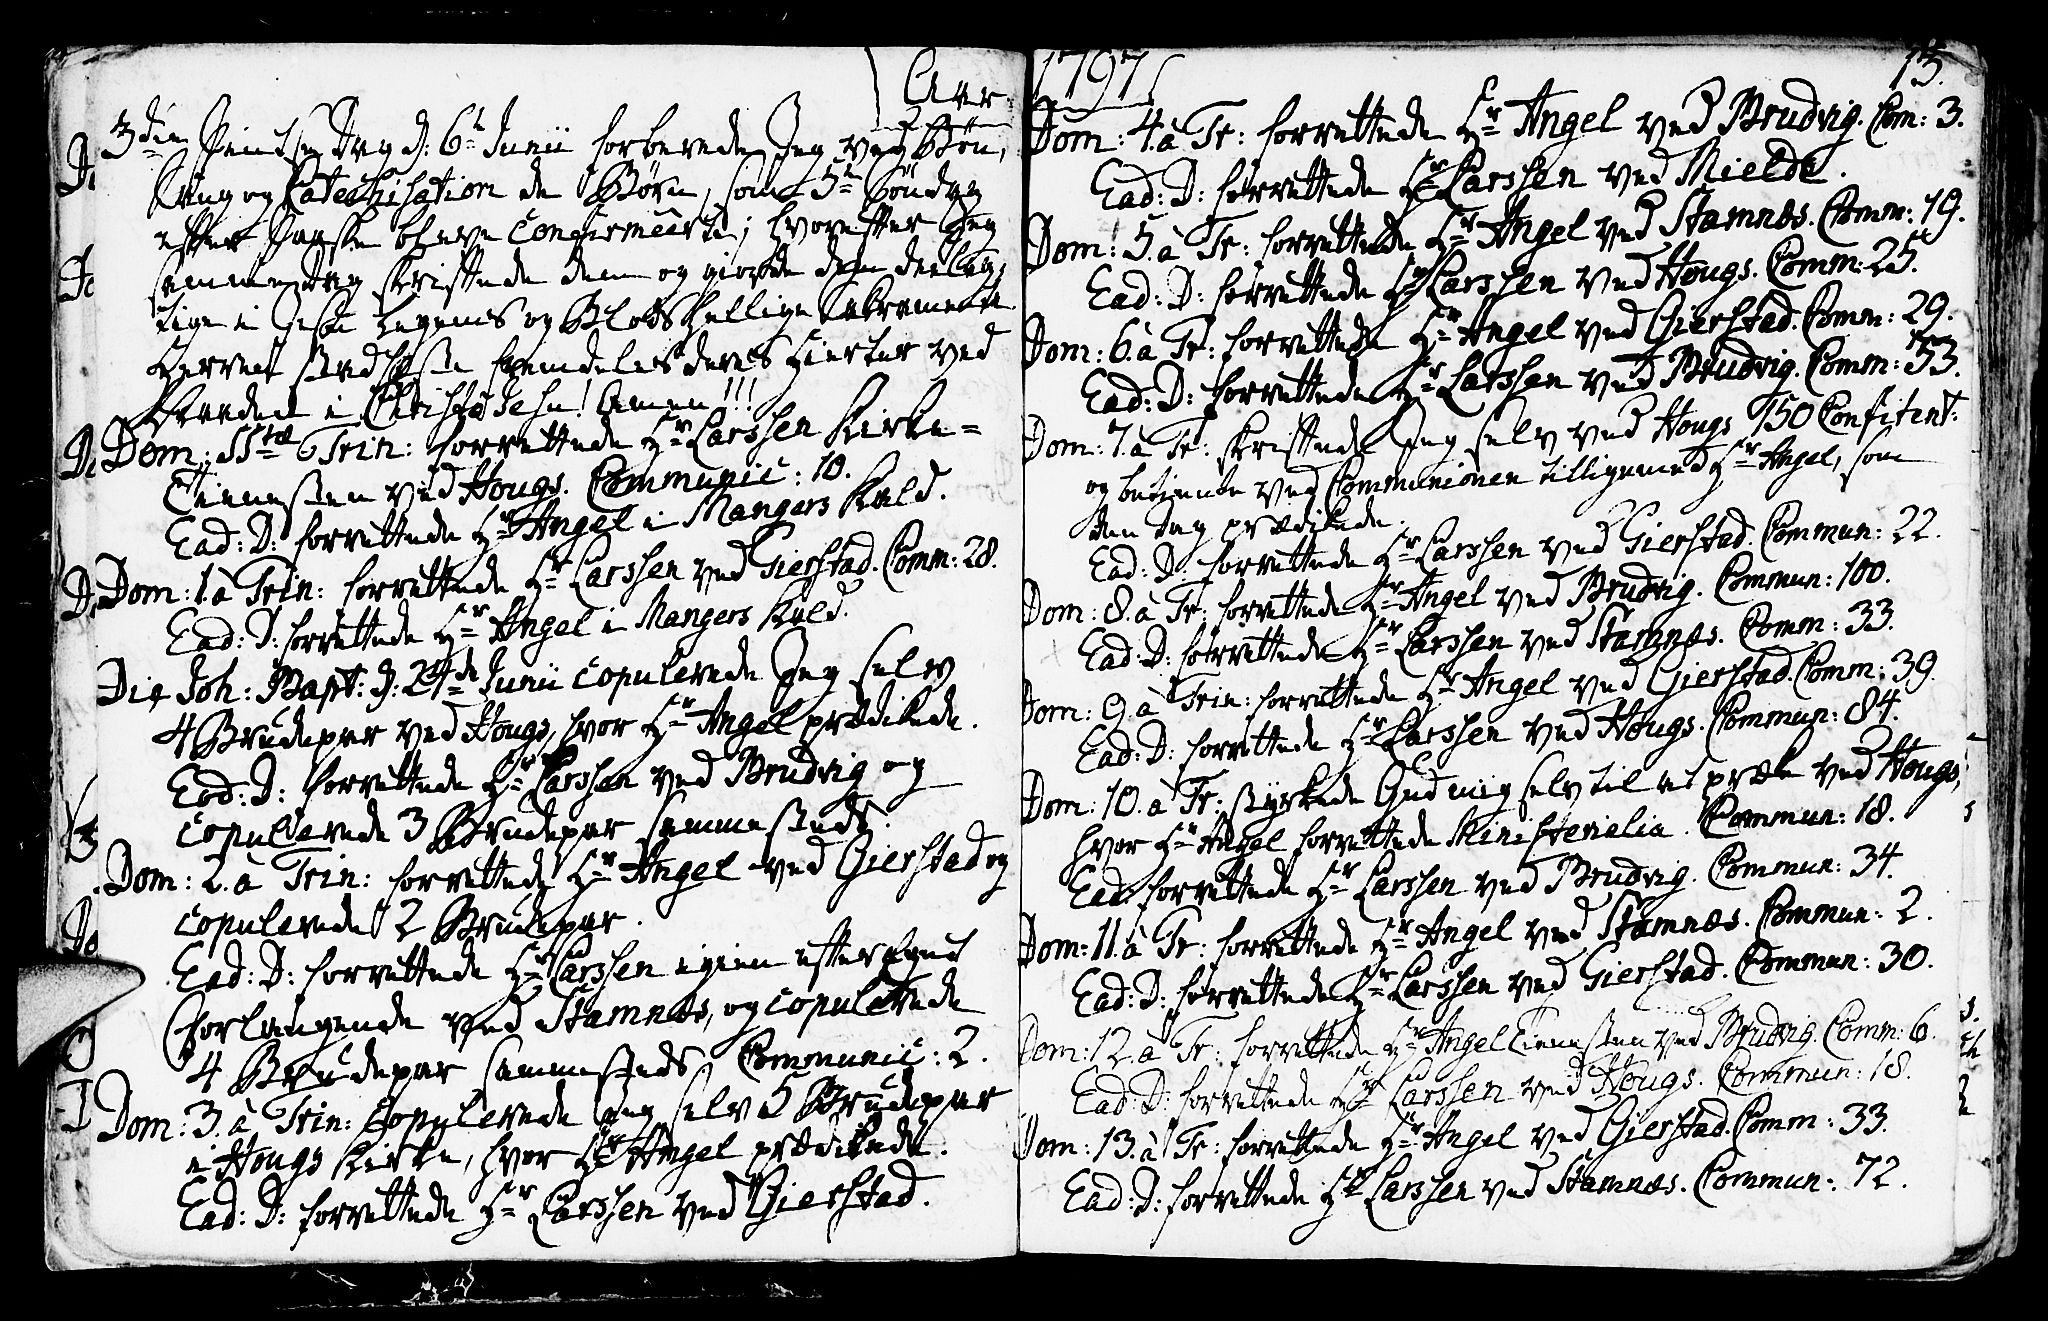 Aar
3die Pintse Dag d: 6te Junii forberede Jeg ved Bøn,
Sang og Catechisation de Børn, som 5te Søndag
efter Paaske bleve Confirmeerte; hvorefter Jeg
samme Dag skriftede dem og giorde dem deelag-
tige i Jesu Legems og Blods hellige Sakramente
Herren stadfæste fremdeles deres Hierter ved
Naaden i Christo Jesu! Amen!!!
Dom: SStæ Trin: forrettede Hr Larssen Kirke-
Tienesten ved Hougs. Communic: 10.
Ead: D: forrettede Hr Angel i Mangers Kald.
Dom: 1. à Trin: forrettede Hr Larssen ved Gierstad. Comm: 28.
Ead: D: forrettede Hr Angel i Mangers Kald.
Die Joh: Bapt: d: 24de Junii copulerede Jeg selv
4 Brudepar ved Hougs, hvor Hr Angel prædikede.
Ead: D: forrettede Hr Larssen ved Brudvig og
copulerede 3 Brudepar sammesteds.
Dom: 2. à Trin: forrettede Hr Angel ved Gierstad og
copulerede 2 Brudepar.
Ead: D: forrettede Hr Larssen igien efter eget
Forlangende ved Stamnæs, og copulerede
4 Brudepar sammesteds. Communic: 2.
Dom: 3. à Trin: copulerede Jeg selv 5 Brudepar
i Hougs Kirke, hvor Hr Angel prædikede.
Ead: D: forrettede Hr Larssen ved Gierstad.
1797
13.
Dom: 4. à Tr: forrettede Hr Angel ved Brudvig. Com: 3.
Ead: D: forrettede Hr Larssen ved Mielde.
Dom: 5. à Tr: forrettede Hr Angel ved Stamnæs. Comm: 19.
Ead: D: forrettede Hr Larssen ved Hougs. Comm: 25.
Dom: 6. à Tr: forrettede Hr Angel ved Gierstad. Comm: 29.
Ead: D: forrettede Hr Larssen ved Brudvig. Comm: 53.
Dom: 7. à Tr: skriftede Jeg selv ved Hougs 150 Confitent:
og betiente ved Communionen tilligemed Hr Angel, som
den Dag prædikede.
Ead: D: forrettede Hr Larssen ved Gierstad. Commun: 22.
Dom: 8. à Tr: forrettede Hr Angel ved Brudvig. Commun: 100.
Ead: D: forrettede Hr Larssen ved Stamnæs. Comm: 33.
Dom: 9. à Trin: forrettede Hr Angel ved Gierstad. Comm: 39.
Ead: D: forrettede Hr Larssen ved Hougs. Commun: 84.
Dom: 10. à Tr: styrkede Gud mig selv til at præke ved Hougs,
hvor Hr Angel forrettede Ministerialia. Commun: 18.
Ead: forrettede Hr Larssen ved Brudvig. Commun: 34.
Dom: 11. à Tr: forrettede Hr Angel ved Stamnæs. Commun: 2.
Ead: D: forrettede Hr Larssen ved Gierstad. Commun: 30.
Dom: 12. à Tr: forrettede Hr Angel Tienesten ved Brudvig. Comm: 6.
Ead: D: forrettede Hr Larssen ved Hougs. Commun: 18.
Dom: 13. à Tr: forrettede Hr Angel ved Gierstad. Comm: 33.
Ead: D: forrettede Hr Larssen ved Stamnæs. Commun: 72.